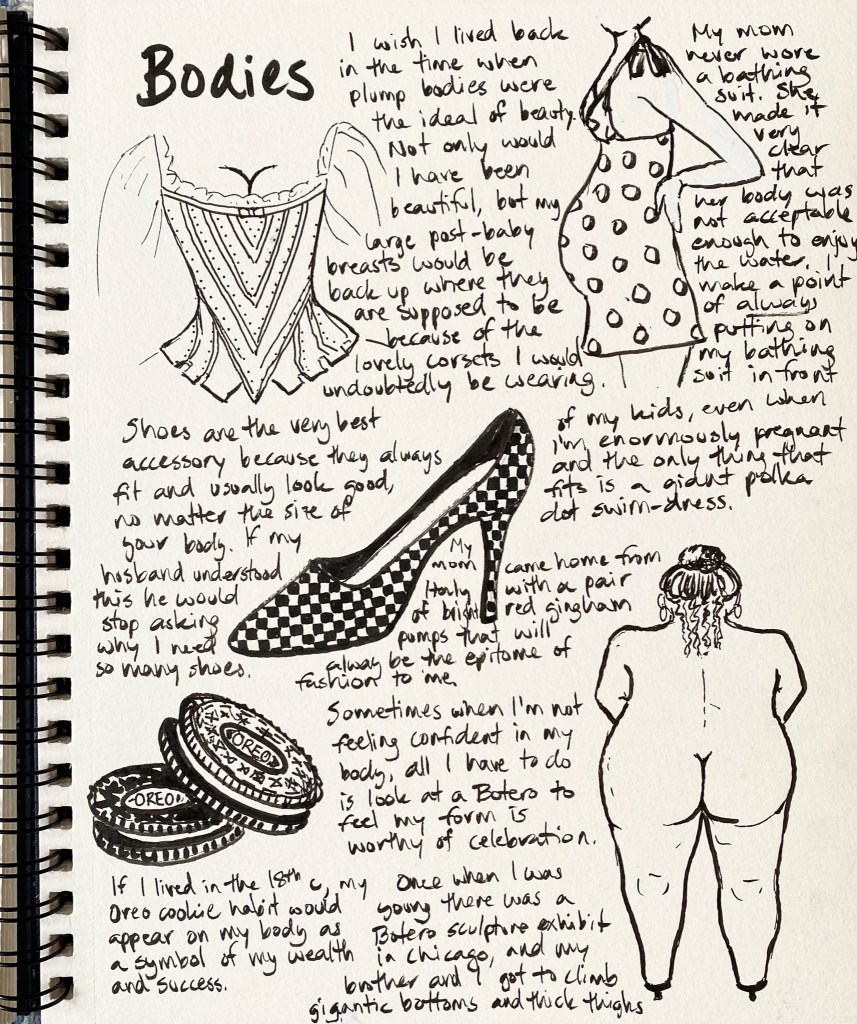 Bodies
I wish I lived back
in the time when
plump bodies were
the ideal of beauty.
Not only would
I have been
beautiful, but my
large post-baby
breasts would be
back up where they
are supposed to be
because of the
lovely corsets I would
undoubtedly be wearing.
My mom
never wore
a bathing
suit. She
made it
very
clear
that
her body was
not acceptable
enough to enjoy
the water. I
make a point
of always
putting on
my bathing
suit in front
of my kids, even when
I'm enormously pregnant
and the only thing that
fits is a giant polka
dot swim-dress.
Shoes are the very best
accessory because they always
fit and usually look good,
no matter the size of
your body. If my
husband understood
this he would
stop asking
why I need
so many shoes.
My
mom came home from
Italy with a pair
of bright red gingham
pumps that will
always be the epitome of
fashion to me.
OREO
OREO
Sometimes when I'm not
feeling confident in my
body, all I have to do
is look at a Botero to
feel my form is
worthy of celebration.
If I lived in the 18th c, my
Oreo cookie habit would
appear on my body as
a symbol of my wealth
and success.
Once when I was
young there was a
Botero sculpture exhibit
in Chicago, and my
brother and I got to climb
gigantic bottoms and thick thighs